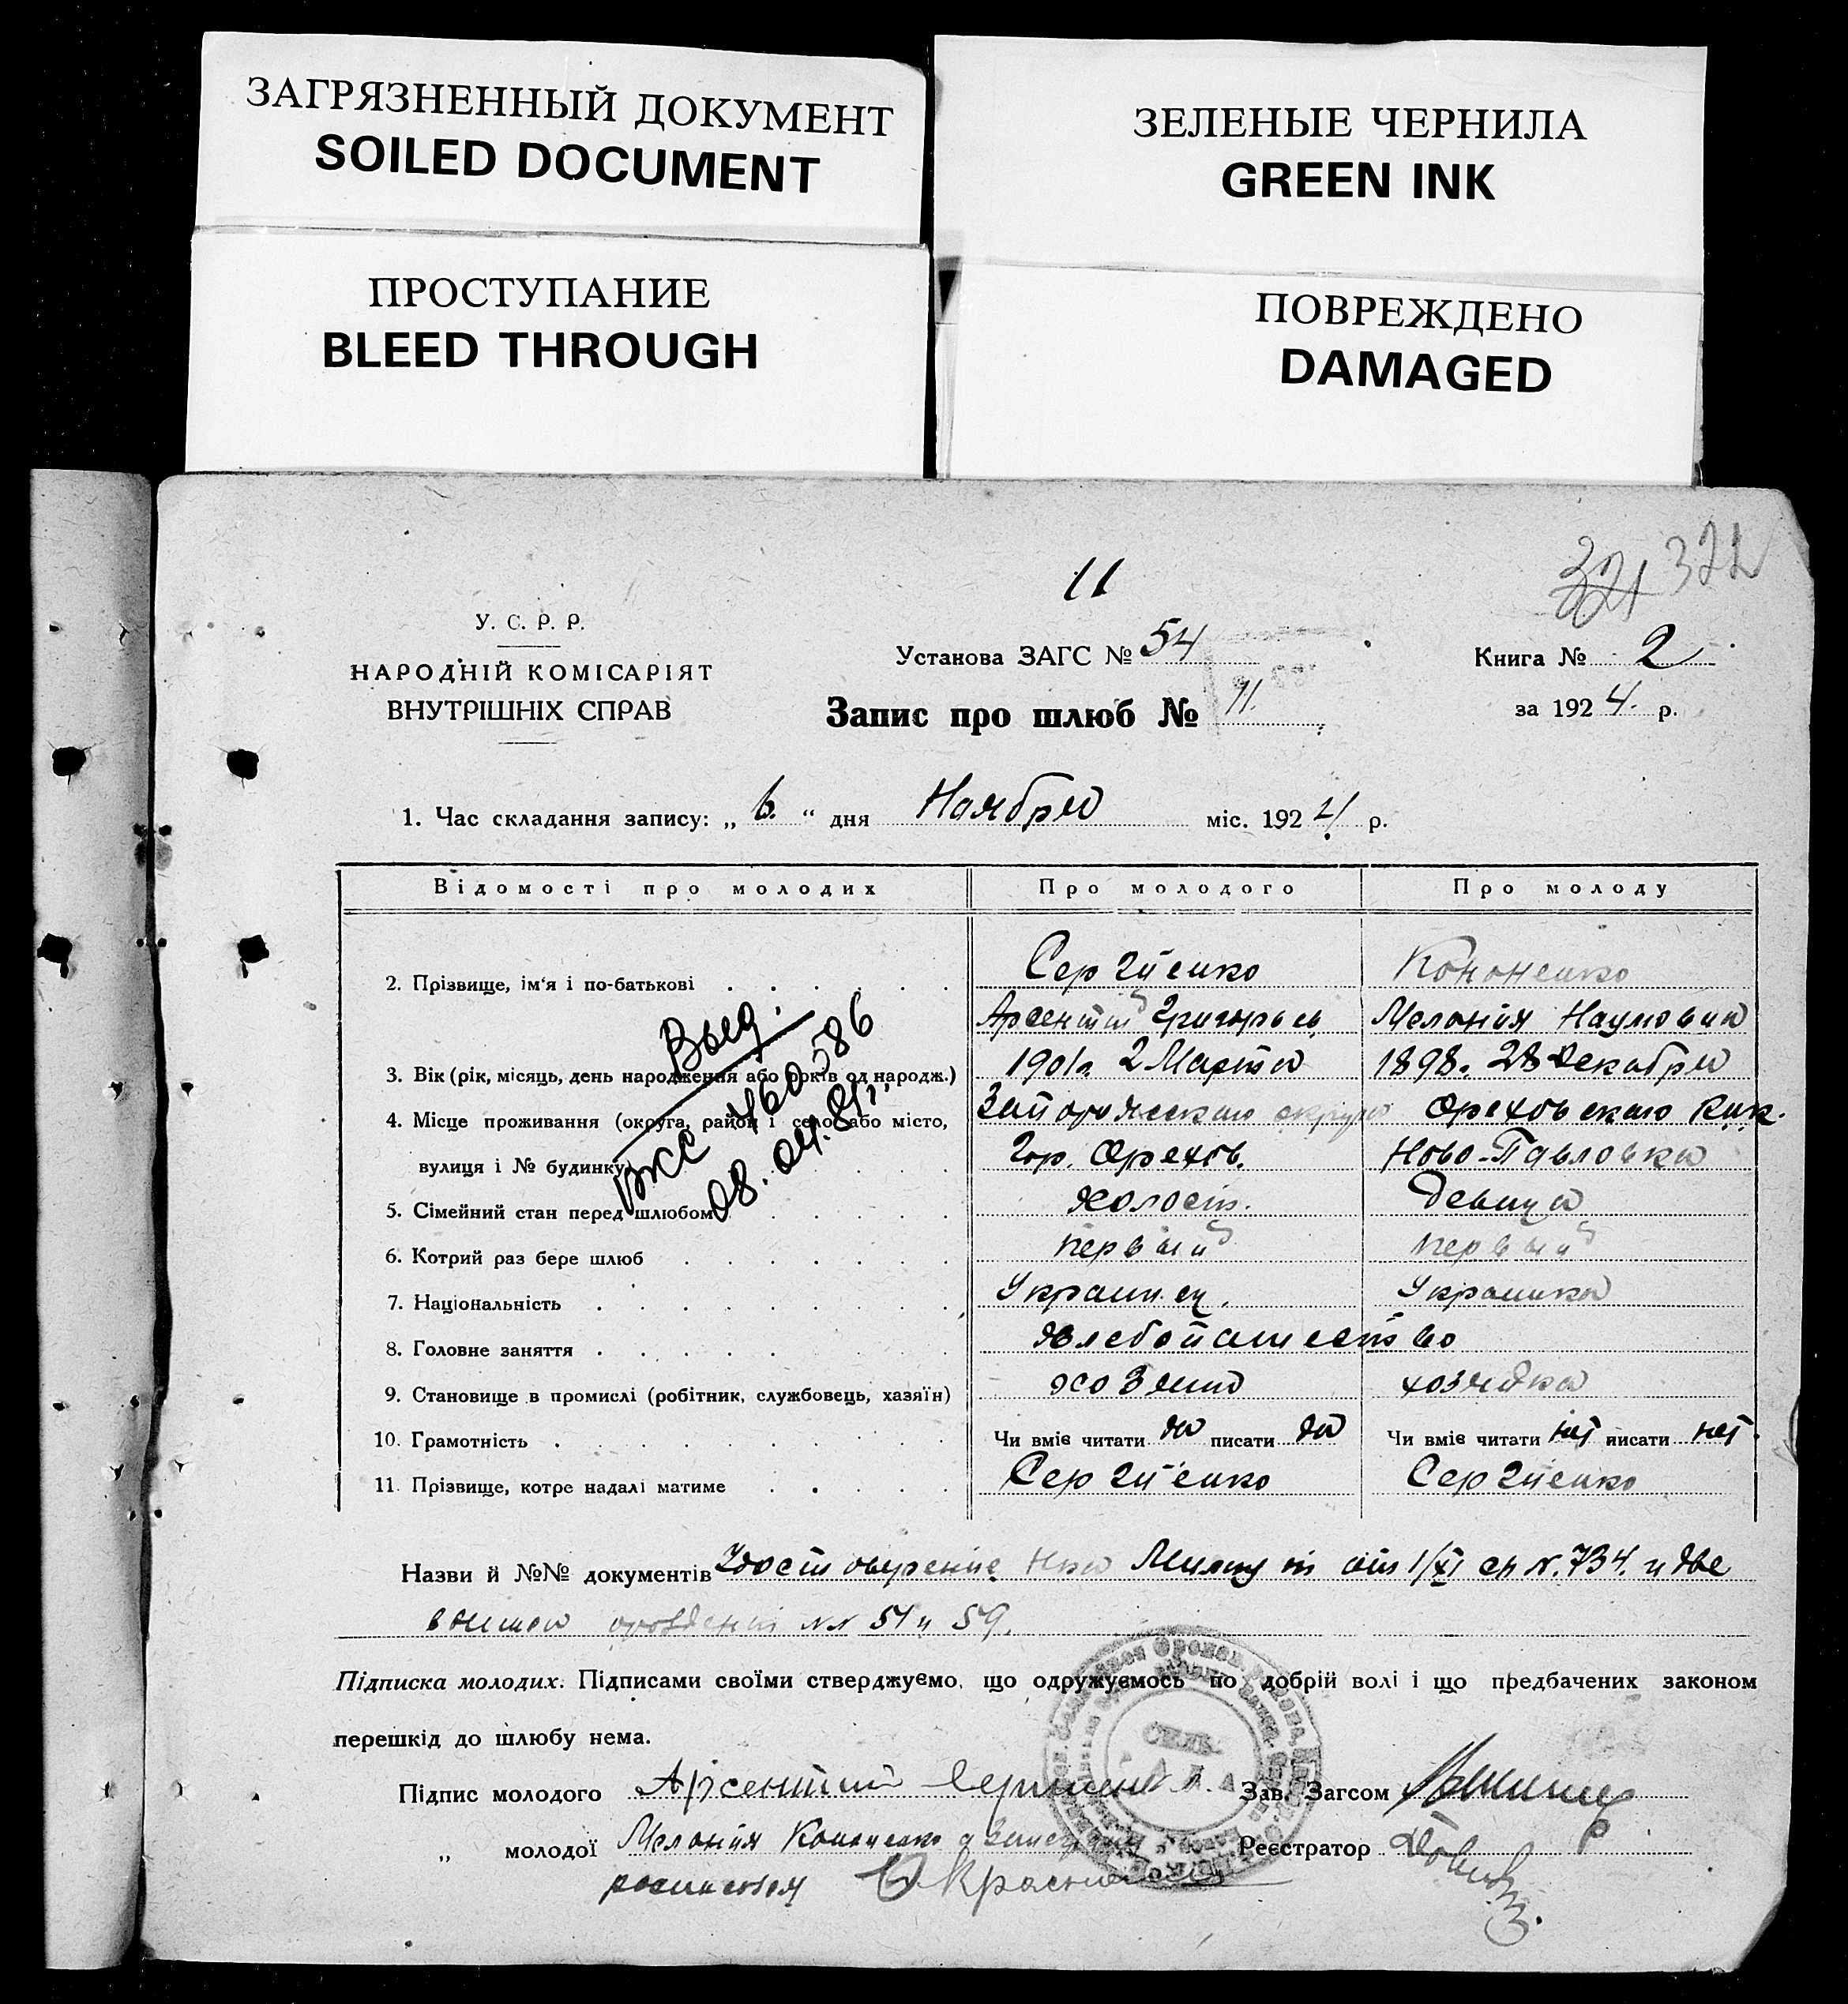 ЗАГРЯЗНЕННЫЙ ДОКУМЕНТ
SOILED DOCUMENT
ЗЕЛЕНЫЕ ЧЕРНИЛА
GREEN INK
ПРОСТУПАНИЕ
BLEED THROUGH
ПОВРЕЖДЕНО
DAMAGED
11
321 322
У. С. Р. Р.
НАРОДНІЙ КОМІСАРІЯТ
ВНУТРІШНІХ СПРАВ
Установа ЗАГС № 54
Запис про шлюб № 11.
Книга № 2
за 1924. р.
1. Час складання запису: „ 6. “ дня Ноября міс. 1924 р.
Відомості про молодих Про молодого Про молоду
2. Прізвище, ім'я і по-батькові Сергиенко Кононенко
Арсентий Григорьев Мелания Наумовна
3. Вік (рік, місяць, день народження або років од народж.) 1901г. 2 Марта 1898. 28 Декабря
4. Місце проживання (округа, район і село або місто, Запорожскаго округа Ореховскаго
вулиця і № будинку) Гор. Орехов. Ново-Павловка
5. Сімейний стан перед шлюбом Холост. Девица
6. Котрий раз бере шлюб первый первый
7. Національність Украинец. Украинка
8. Головне заняття Хлебопашество
9. Становище в промислі (робітник, службовець, хазяїн) хозяин хозяйка
10. Грамотність Чи вміє читати да писати да Чи вміє читати нет писати нет.
11. Прізвище, котре надалі матиме Сергиенко Сергиенко
Выд.
ЖС 460586
08.04.81г.
Назви й №№ документів Удостоверение от 1/XI с/г N. 734. и две
51 и 59.
Підписка молодих. Підписами своїми стверджуємо, що одружуємось по добрій волі і що предбачених законом
перешкід до шлюбу нема.
Підпис молодого Арсентий Сергиенко Зав. Загсом
„ молодої Мелания Кононенко Реєстратор